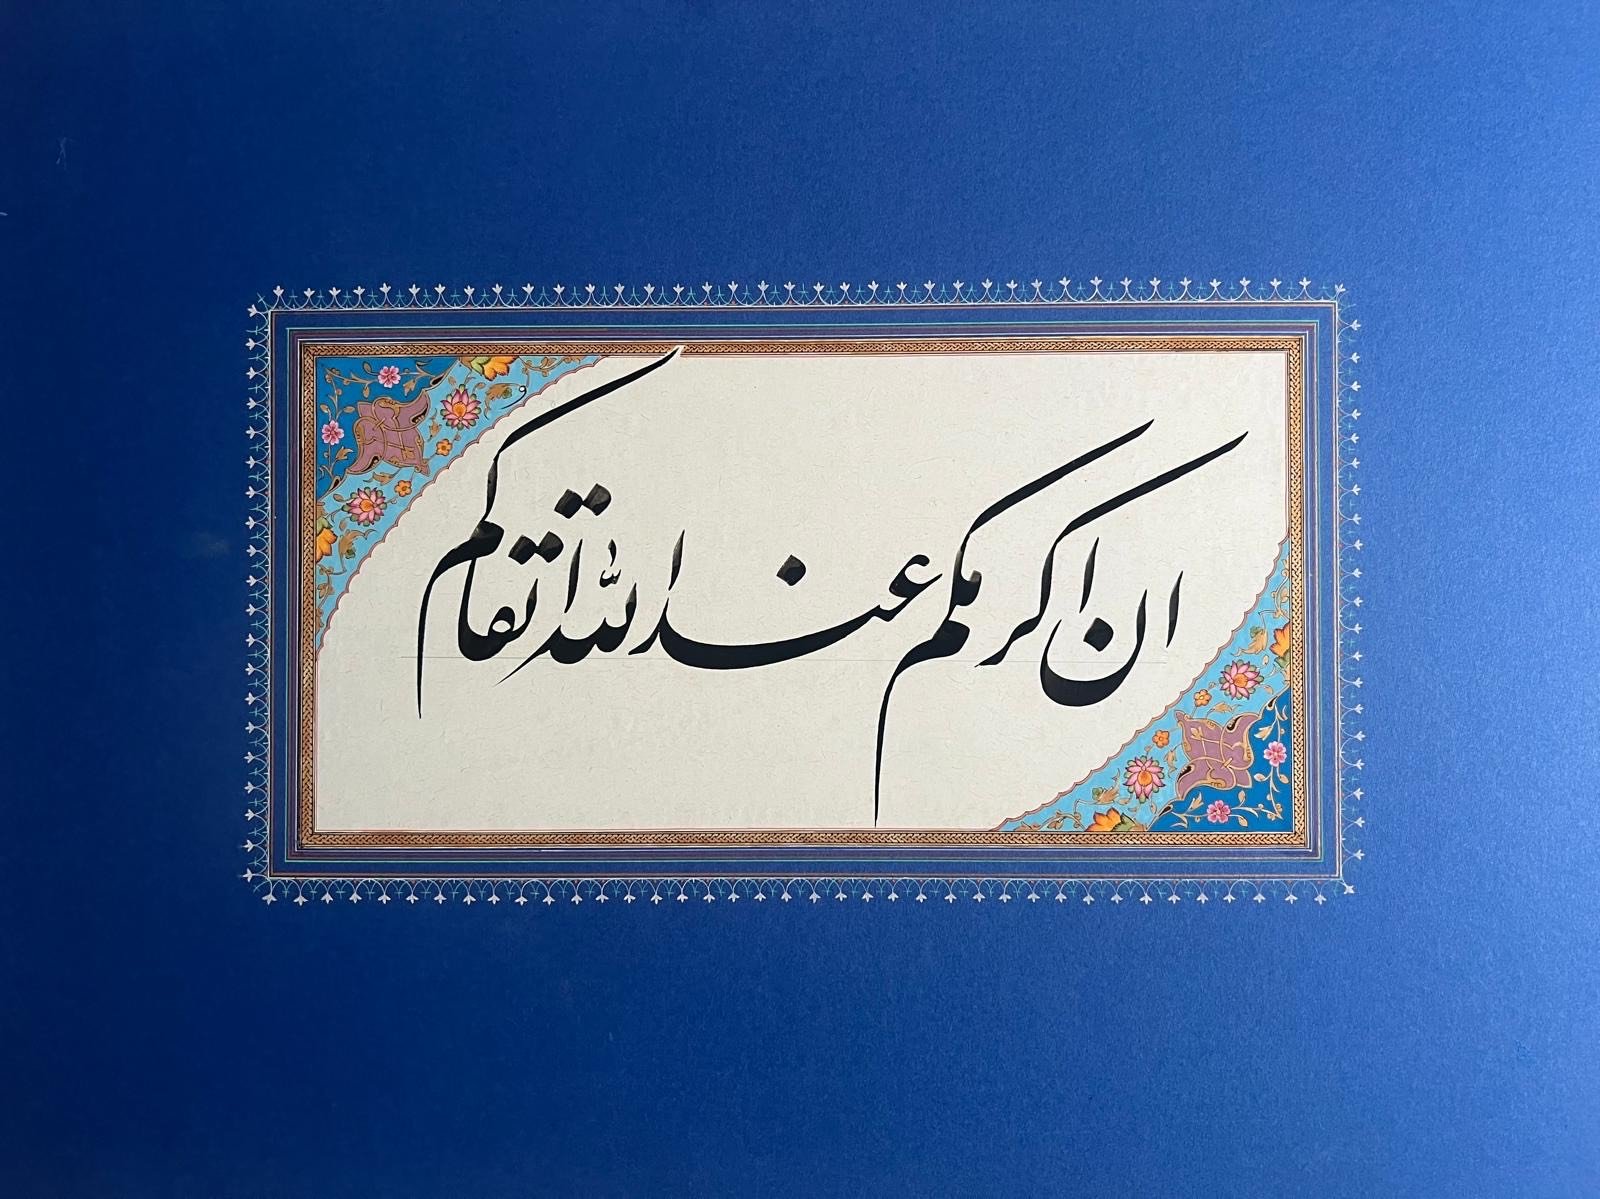 ان اکرمکم عند الله اتقاکم